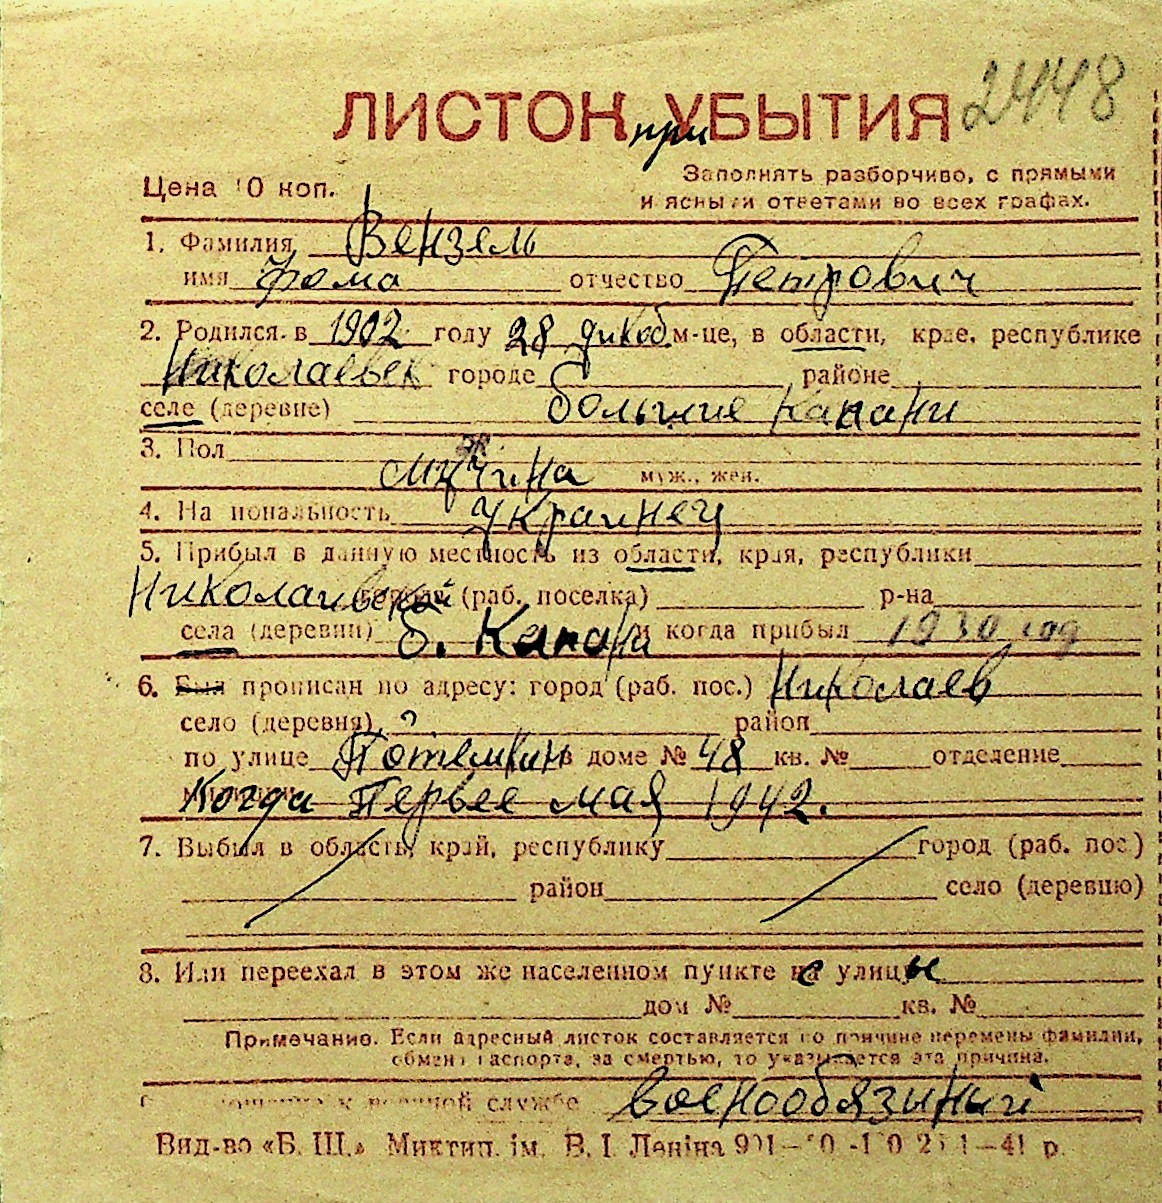 2448
ЛИСТОК при УБЫТИЯ
Цена 10 коп.
Заполнять разборчиво, с прямыми
и ясными ответами во всех графах.
1. Фамилия Вензель
имя Фома отчество Петрович
2. Родился в 1902 году 28 дикоб м-це, в области, крае, республике
Николаевск городе районе
селе (деревне) большие Капани
3. Пол мущина муж., жен.
4. Национальность Украинец
5. Прибыл в данную местность из области, края, республики
Николаивской города (раб. поселка) р-на
села (деревни) б. Капани и когда прибыл 1930 год
6. Был прописан по адресу: город (раб. пос.) Николаев
село (деревня) район
по улице Потемкин в доме № 48 кв. № отделение
Когда Первее мая 1942.
7. Выбыл в область, край, республику город (раб. пос.)
район село (деревню)
8. Или переехал в этом же населенном пункте с улицы
дом № кв. №
Примечание. Если адресный листок составляется по причине перемены фамилии,
обмена паспорта, за смертью, то указывается эта причина.
к военной службе военообязиный
Вид-во «Б. Ш.» Миктип. ім. В. І. Леніна